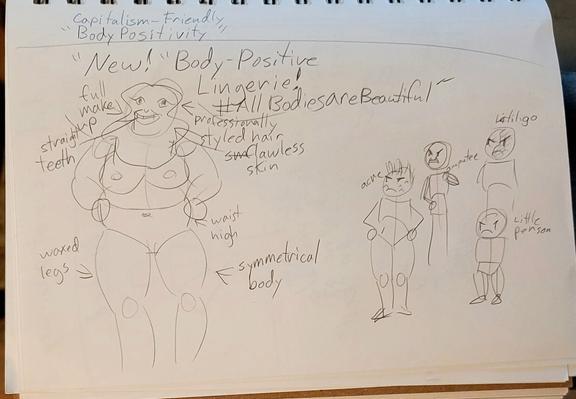 Capitalism-Friendly
"Body Positivity"
"New!" "Body-Positive
Lingerie!
#AllBodiesAreBeautiful"
full
makeup
straight
teeth
professionally
styled hair
flawless
skin
waist
high
waxed
legs
symmetrical
body
acne
amputee
vitiligo
little
person